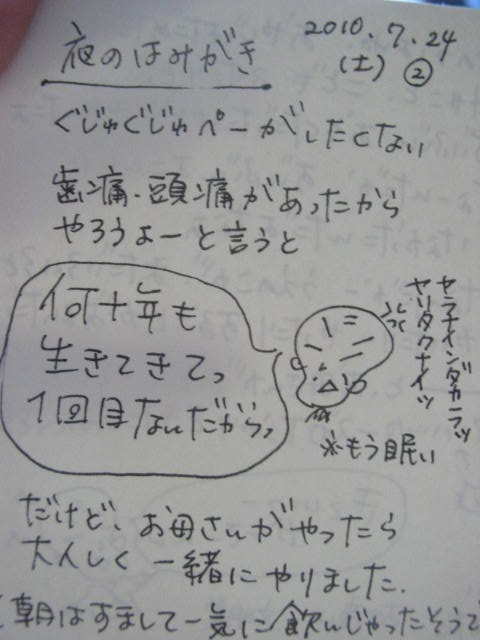 2010.7.24
(土)②
夜のはみがき
ぐじゅぐじゅペーがしたくない
歯痛・頭痛があったから
やろうよーと言うと
何十年も
生きてきてっ
1回目ないだからっ
ヤラナインダカラッ
ヤリタクナイッ
※もう眠い
だけど、お母さんがやったら
大人しく一緒にやりました。
朝はすまして一気に飲んじゃったそうで